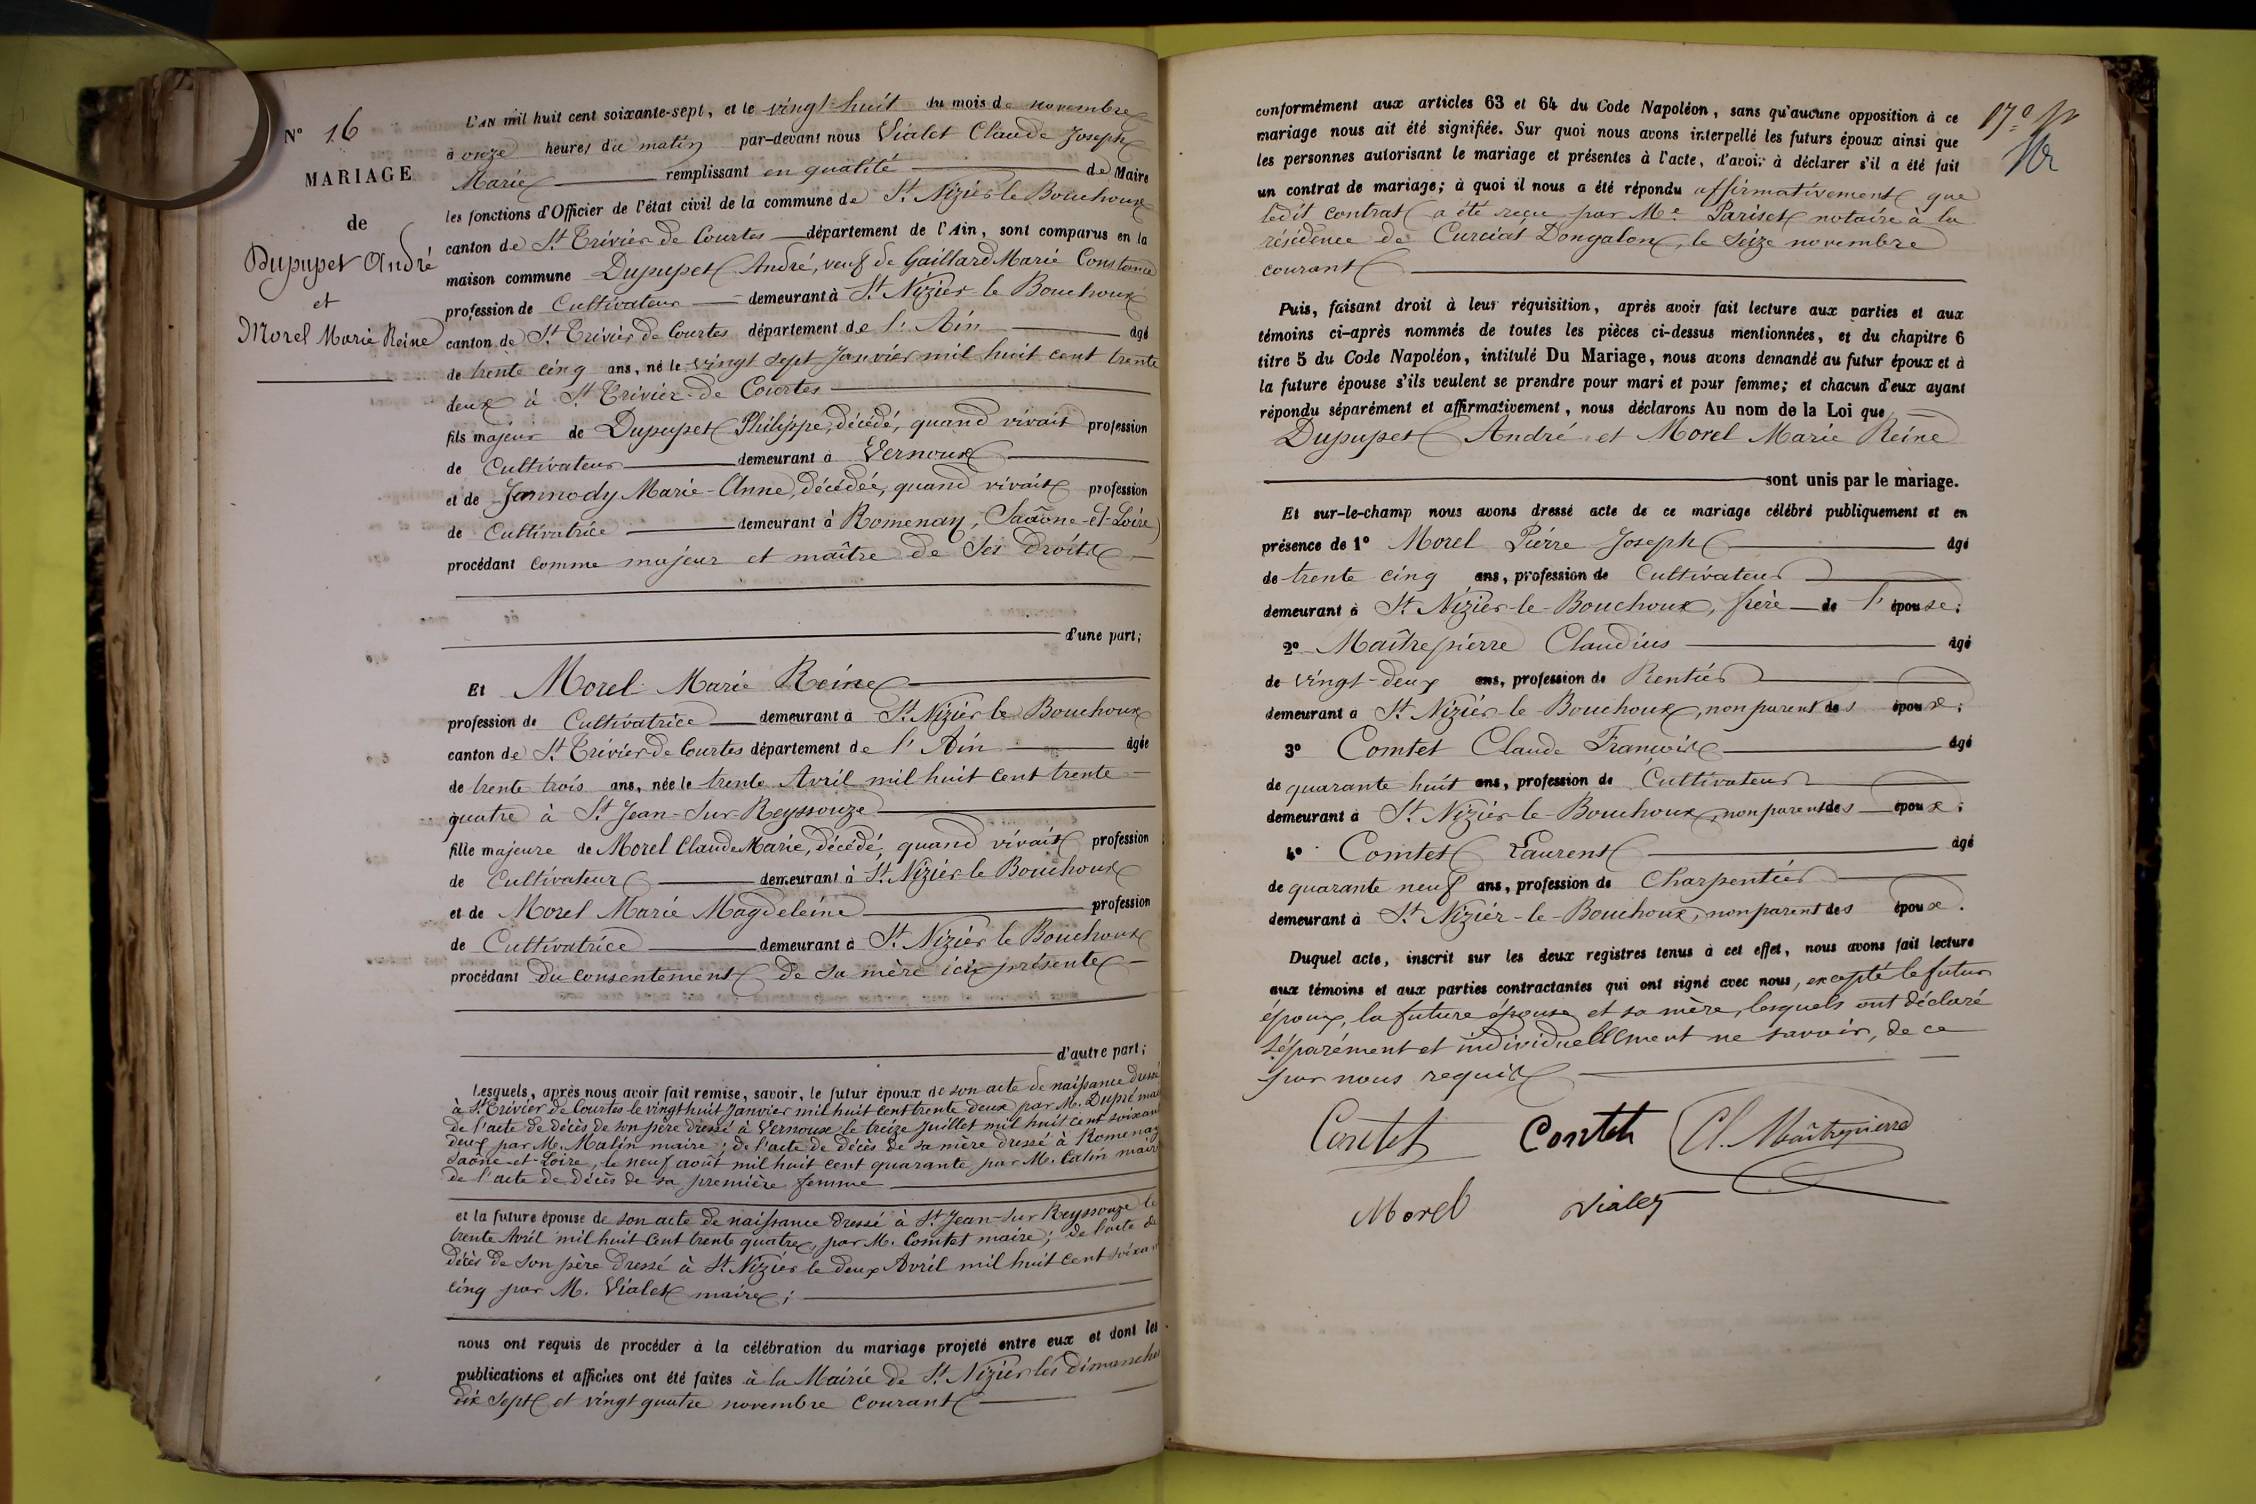 N° 16
MARIAGE
de
Dupupet André
et
Morel Marie Reine
L'AN mil huit cent soixante-sept, et le vingt-huit du mois de novembre
à onze heures du matin par-devant nous Vialet Claude Joseph
Marie remplissant en qualité de Maire
les fonctions d'Officier de l'état civil de la commune de St Nizier le Bouchoux
canton de St Trivier de Courtes département de l'Ain, sont comparus en la
maison commune Dupupet André, veuf de Gaillard Marie Constance
profession de Cultivateur demeurant à St Nizier le Bouchoux
canton de St Trivier de Courtes département de l'Ain âgé
de trente cinq ans, né le vingt sept Janvier mil huit cent trente
deux à St Trivier de Courtes
fils majeur de Dupupet Philippe, décédé, quand vivait profession
de Cultivateur demeurant à Vernoux
et de Jannody Marie-Anne, décédée, quand vivait profession
de Cultivatrice demeurant à Romenay, (Saône-et-Loire)
procédant comme majeur et maître de ses droits
d'une part;
Et Morel Marie Reine
profession de Cultivatrice demeurant à St Nizier le Bouchoux
canton de St Trivier de Courtes département de l'Ain âgée
de trente trois ans, née le trente Avril mil huit cent trente
quatre à St Jean-sur-Reyssouze
fille majeure de Morel Claude Marie, décédé, quand vivait profession
de Cultivateur demeurant à St Nizier le Bouchoux
et de Morel Marie Magdeleine profession
de Cultivatrice demeurant à St Nizier le Bouchoux
procédant du consentement de sa mère ici présente
d'autre part;
Lesquels, après nous avoir fait remise, savoir, le futur époux de son acte de naissance dressé
à St Trivier de Courtes le vingt huit Janvier mil huit cent trente deux par M. Dupré maire
de l'acte de décès de son père dressé à Vernoux le treize Juillet mil huit cent soixante
deux par M. Matin maire; de l'acte de décès de sa mère dressé à Romenay
Saône-et-Loire, le neuf août mil huit cent quarante par M. Catin maire
de l'acte de décès de sa première femme
et la future épouse de son acte de naissance dressé à St Jean-sur Reyssouze le
trente Avril mil huit cent trente quatre, par M. Comtet maire; de l'acte de
décès de son père dressé à St Nizier le deux Avril mil huit cent soixante
cinq par M. Vialet maire;
nous ont requis de procéder à la célébration du mariage projeté entre eux et dont les
publications et affiches ont été faites à la Mairie de St Nizier les dimanches
dix sept et vingt quatre novembre courant
conformément aux articles 63 et 64 du Code Napoléon, sans qu'aucune opposition à ce
mariage nous ait été signifiée. Sur quoi nous avons interpellé les futurs époux ainsi que
les personnes autorisant le mariage et présentes à l'acte, d'avoir à déclarer s'il a été fait
un contrat de mariage; à quoi il nous a été répondu affirmativement que
ledit contrat a été reçu par Me Pariset notaire à la
résidence de Curciat Dongalon, le seize novembre
courant
Puis, faisant droit à leur réquisition, après avoir fait lecture aux parties et aux
témoins ci-après nommés de toutes les pièces ci-dessus mentionnées, et du chapitre 6
titre 5 du Code Napoléon, intitulé Du Mariage, nous avons demandé au futur époux et à
la future épouse s'ils veulent se prendre pour mari et pour femme; et chacun d'eux ayant
répondu séparément et affirmativement, nous déclarons Au nom de la Loi que
Dupupet André et Morel Marie Reine
sont unis par le mariage.
Et sur-le-champ nous avons dressé acte de ce mariage célébré publiquement et en
présence de 1° Morel Pierre Joseph âgé
de trente cinq ans, profession de Cultivateur
demeurant à St Nizier-le-Bouchoux, frère de l'épouse;
2° Maîtrepierre Claudius âgé
de vingt-deux ans, profession de Rentier
demeurant à St Nizier-le Bouchoux, non parent des époux;
3° Comtet Claude François âgé
de quarante huit ans, profession de Cultivateur
demeurant à St Nizier-le-Bouchoux, non parent des époux;
4° Comtet Laurent âgé
de quarante neuf ans, profession de Charpentier
demeurant à St Nizier-le-Bouchoux, non parent des époux.
Duquel acte, inscrit sur les deux registres tenus à cet effet, nous avons fait lecture
aux témoins et aux parties contractantes qui ont signé avec nous, excepté le futur
époux, la future épouse et sa mère, lesquels ont déclaré
séparément et individuellement ne savoir, de ce
par nous requis
Comtet Contet Cl. Maîtrepierre
Morel Vialet